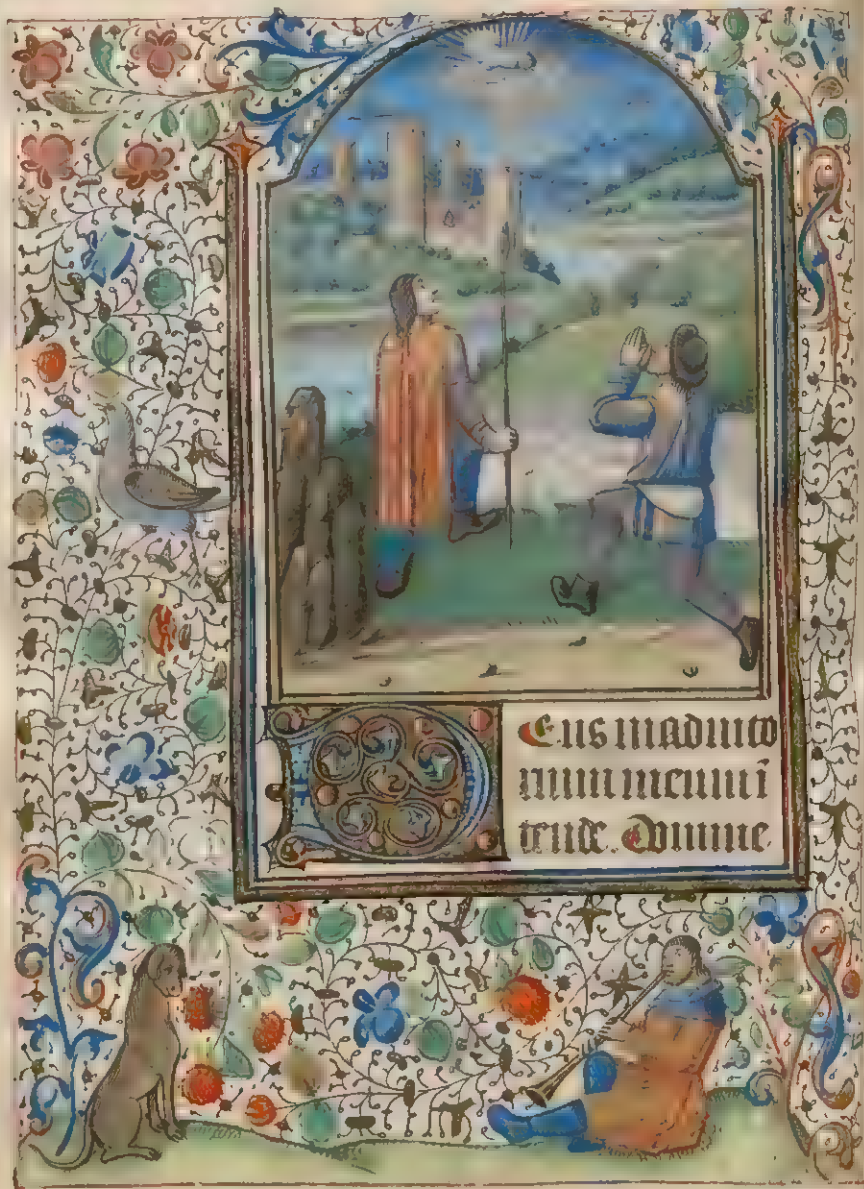 Deus in adiuto
rium meum ī
tende. Domine